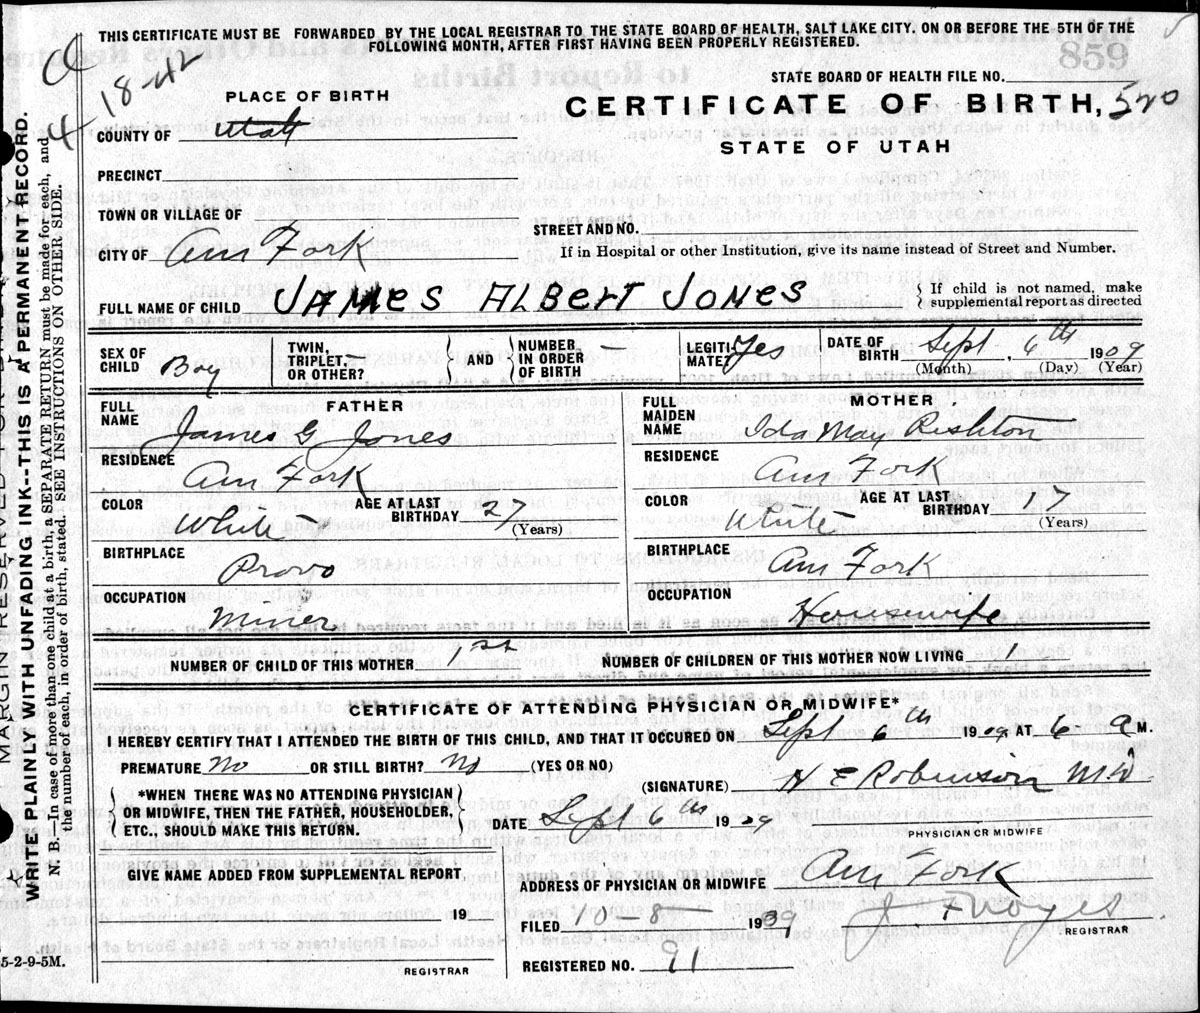 THIS CERTIFICATE MUST BE FORWARDED BY THE LOCAL REGISTRAR TO THE STATE BOARD OF HEALTH, SALT LAKE CITY. ON OR BEFORE THE 5TH OF THE
FOLLOWING MONTH, AFTER FIRST HAVING BEEN PROPERLY REGISTERED.
4-18-42
STATE BOARD OF HEALTH FILE NO.
PLACE OF BIRTH
CERTIFICATE OF BIRTH, 520
COUNTY OF Utah
STATE OF UTAH
PRECINCT
TOWN OR VILLAGE OF
STREET AND NO.
CITY OF Am Fork
If in Hospital or other Institution, give its name instead of Street and Number.
FULL NAME OF CHILD JAMES ALBERT JONES
If child is not named, make
supplemental report as directed
SEX OF CHILD Boy
TWIN, TRIPLET, OR OTHER? —
AND
NUMBER IN ORDER OF BIRTH —
LEGITIMATE? Yes
DATE OF BIRTH Sept, 6th 1909
(Month) (Day) (Year)
FATHER
FULL NAME James G Jones
RESIDENCE Am Fork
COLOR White
AGE AT LAST BIRTHDAY 27 (Years)
BIRTHPLACE Provo
OCCUPATION Miner
MOTHER
FULL MAIDEN NAME Ida May Rishton
RESIDENCE Am Fork
COLOR White
AGE AT LAST BIRTHDAY 17 (Years)
BIRTHPLACE Am Fork
OCCUPATION Housewife
NUMBER OF CHILD OF THIS MOTHER 1st
NUMBER OF CHILDREN OF THIS MOTHER NOW LIVING 1
CERTIFICATE OF ATTENDING PHYSICIAN OR MIDWIFE*
I HEREBY CERTIFY THAT I ATTENDED THE BIRTH OF THIS CHILD, AND THAT IT OCCURED ON Sept 6th 1909 AT 6- A M.
PREMATURE No OR STILL BIRTH? No (YES OR NO)
(SIGNATURE) H E Robinson MD
*WHEN THERE WAS NO ATTENDING PHYSICIAN
OR MIDWIFE, THEN THE FATHER, HOUSEHOLDER,
ETC., SHOULD MAKE THIS RETURN.
DATE Sept 6th 1909
PHYSICIAN OR MIDWIFE
GIVE NAME ADDED FROM SUPPLEMENTAL REPORT.
ADDRESS OF PHYSICIAN OR MIDWIFE Am Fork
19
FILED 10-8- 1909
J F Noyes
REGISTRAR
REGISTRAR
REGISTERED NO. 91
5-2-9-5M.
WRITE PLAINLY WITH UNFADING INK--THIS IS A PERMANENT RECORD.
N. B.—In case of more than one child at a birth, a SEPARATE RETURN must be made for each, and
the number of each, in order of birth, stated. SEE INSTRUCTIONS ON OTHER SIDE.